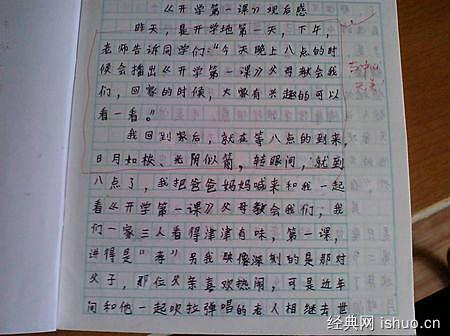 《开学第一课》观后感
昨天，是开学地第一天，下午，
老师告诉同学们“今天晚上八点的时
候会播出《开学第一课》父母教会我
们，回家的时候，大家有兴趣的可以
看一看。”
我回到家后，就在等八点的到来，
日月如梭、光阴似箭，转眼间，就到
八点了，我把爸爸妈妈喊来和我一起
看《开学第一课》父母教会我们，我
们一家三人看得津津有味，第一课，
讲得是“孝”另我映像深刻的是那对
父子，那位父亲喜欢热闹，可是近年
间和他一起吹拉弹唱的老人相继去世
经典网 ishuo.cn